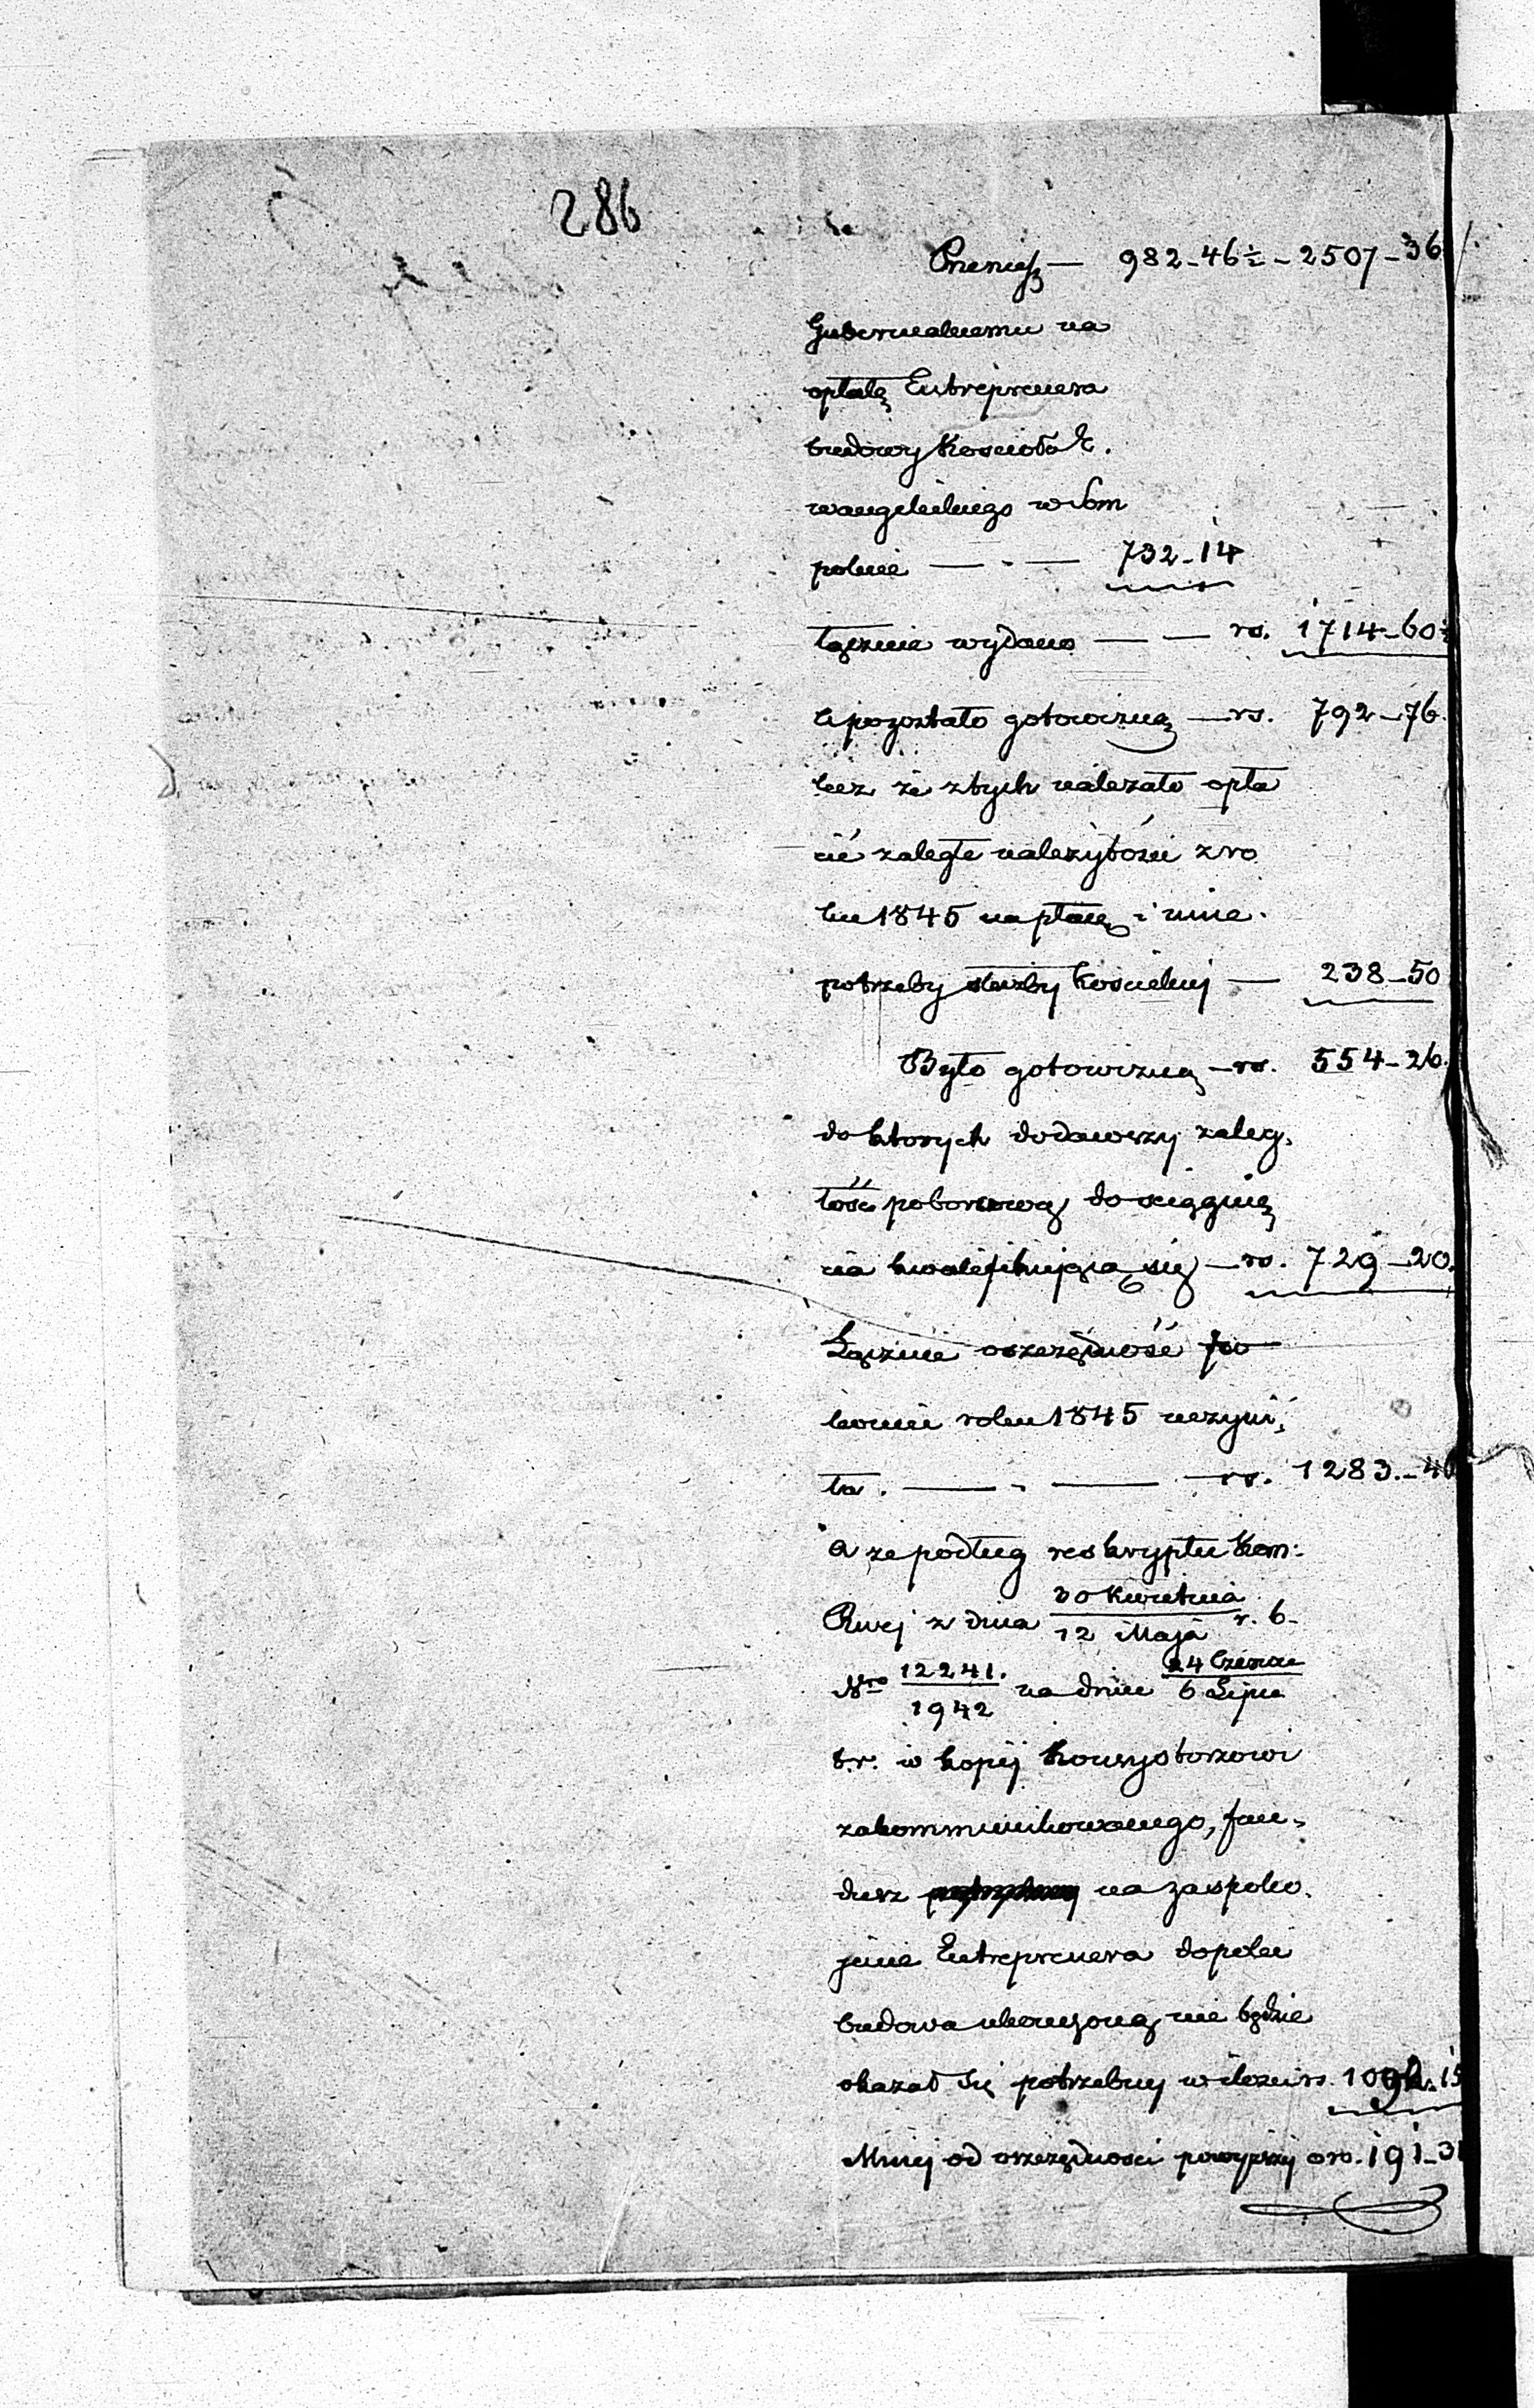 286
Przenieś — 982-46½ - 2507-36
Gubernialnemu na
opłatę Entreprenera
budowy Kościoła E-
wangelickiego w Som
polnie — - — 732-14
łącznie wydano — — rs. 1714-60½
a pozostało gotowizną — rs. 792-76.
lecz że z tych należało opła
cić zaległe należytości z ro
ku 1845 na płacę i inne
potrzeby służby Kościelnej — 238-50
Było gotowizną — rs. 554-26.
do których dodawszy zaleg-
łość poborową do ściągnię
cia kwalifikującą się — rs. 729-20.
Łącznie oszczędność po
koniec roku 1845 uczyni-
ła. — - — rs. 1283.-46
a że podług reskryptu Kom:
Rwej z dnia 30 Kwietnia / 12 Maja r. b.
Nro 12241. / 1942 na dniu 24 Czerwca / 6 Lipca
b.r. w kopij Konsystorzowi
zakommunikowanego, fun-
dusz na zaspoko-
jenie Entreprenera dopóki
budowa ukończoną nie będzie
okazał się potrzebny w ilości rs. 1092.15
Mniej od oszczędności powyższej o rs. 191-31